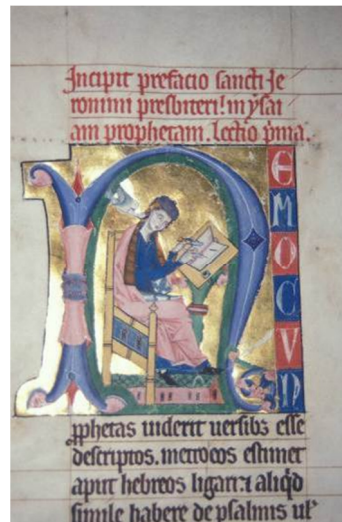 Incipit prefacio sancti Je
ronimi presbiteri! in ysai
am prophetam. Lectio pma.
NEMO CUM
pphetas uiderit uersibs esse
descriptos. metrocos estimet
aput hebreos ligari: aliqd
simile habere de psalmis ul'